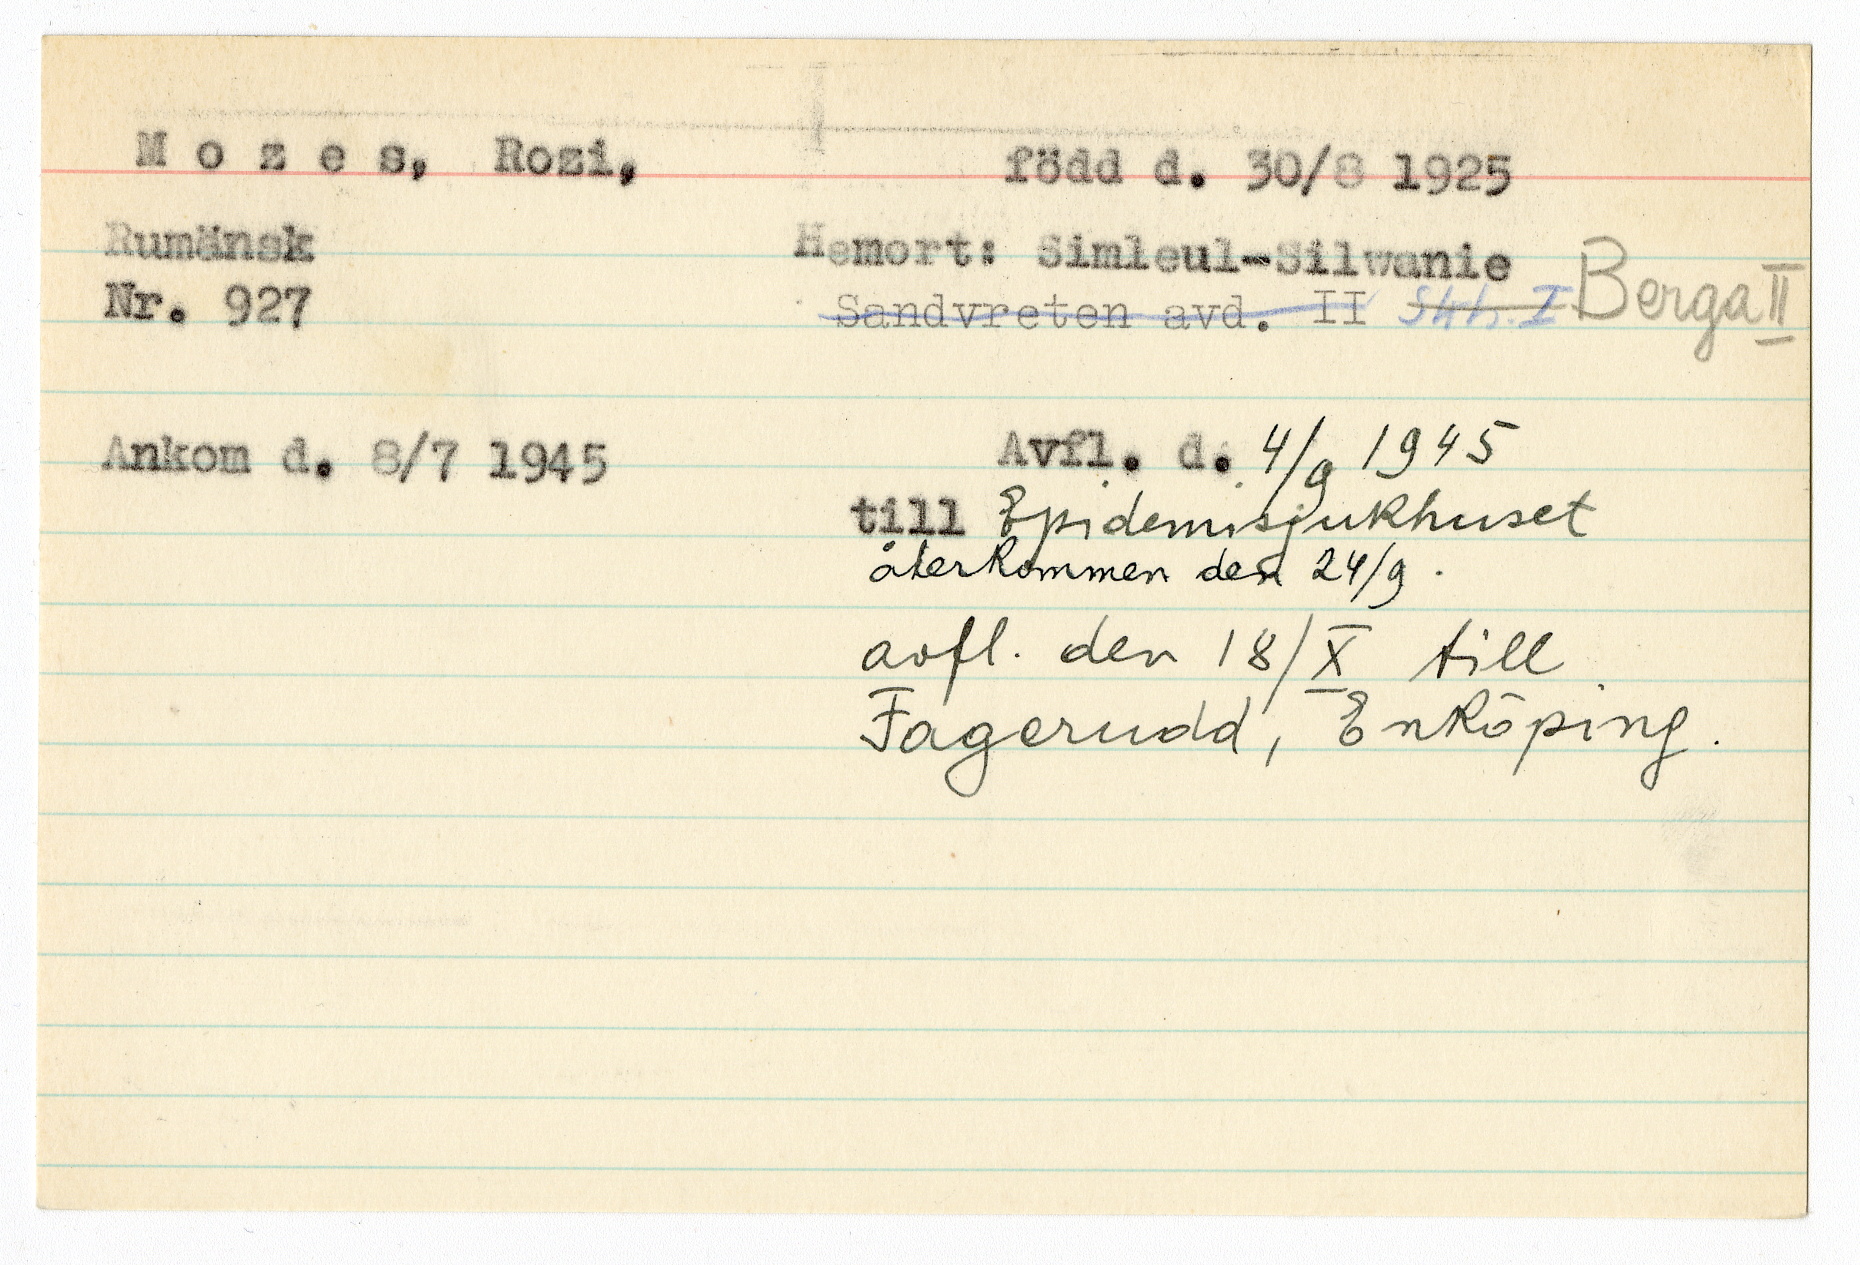 Mozes, Rozi, född d. 30/8 1925
Rumänsk Hemort: Simleul-Silwanie
Nr. 927 Sandvreten avd. II Berga II
Ankom d. 8/7 1945 Avfl. d. 4/9 1945
till Epidemisjukhuset
återkommen den 24/9.
avfl. den 18/X till
Fagerudd, Enköping.